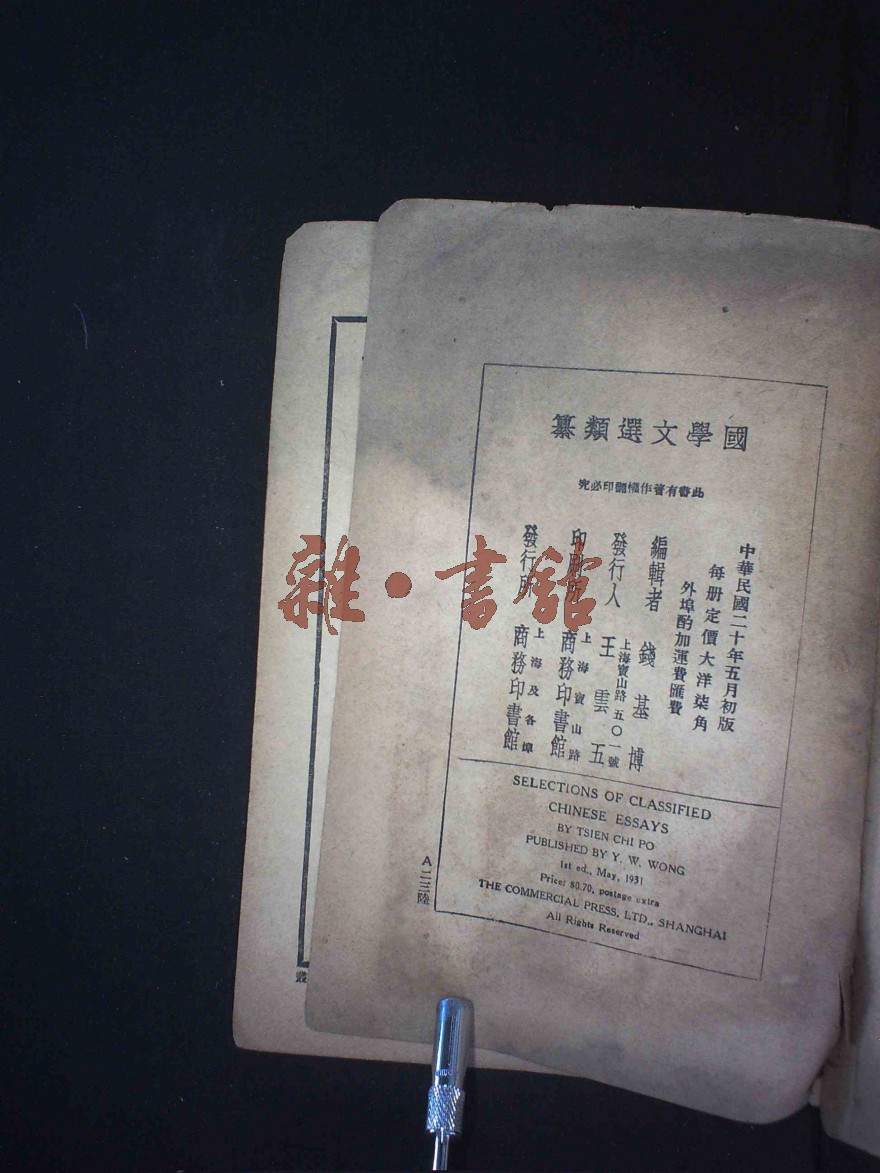 國學文選類纂
此書有著作權翻印必究
中華民國二十年五月初版
每册定價大洋柒角
外埠酌加運費匯費
編輯者 錢基博
發行人 王雲五
上海寶山路五〇一號
印刷所 商務印書館
上海寶山路
發行所 商務印書館
上海及各埠
SELECTIONS OF CLASSIFIED
CHINESE ESSAYS
BY TSIEN CHI PO
PUBLISHED BY Y. W. WONG
1st ed., May, 1931
Price: $0.70, postage extra
THE COMMERCIAL PRESS, LTD., SHANGHAI
All Rights Reserved
A二三陸
叢
雜·書館